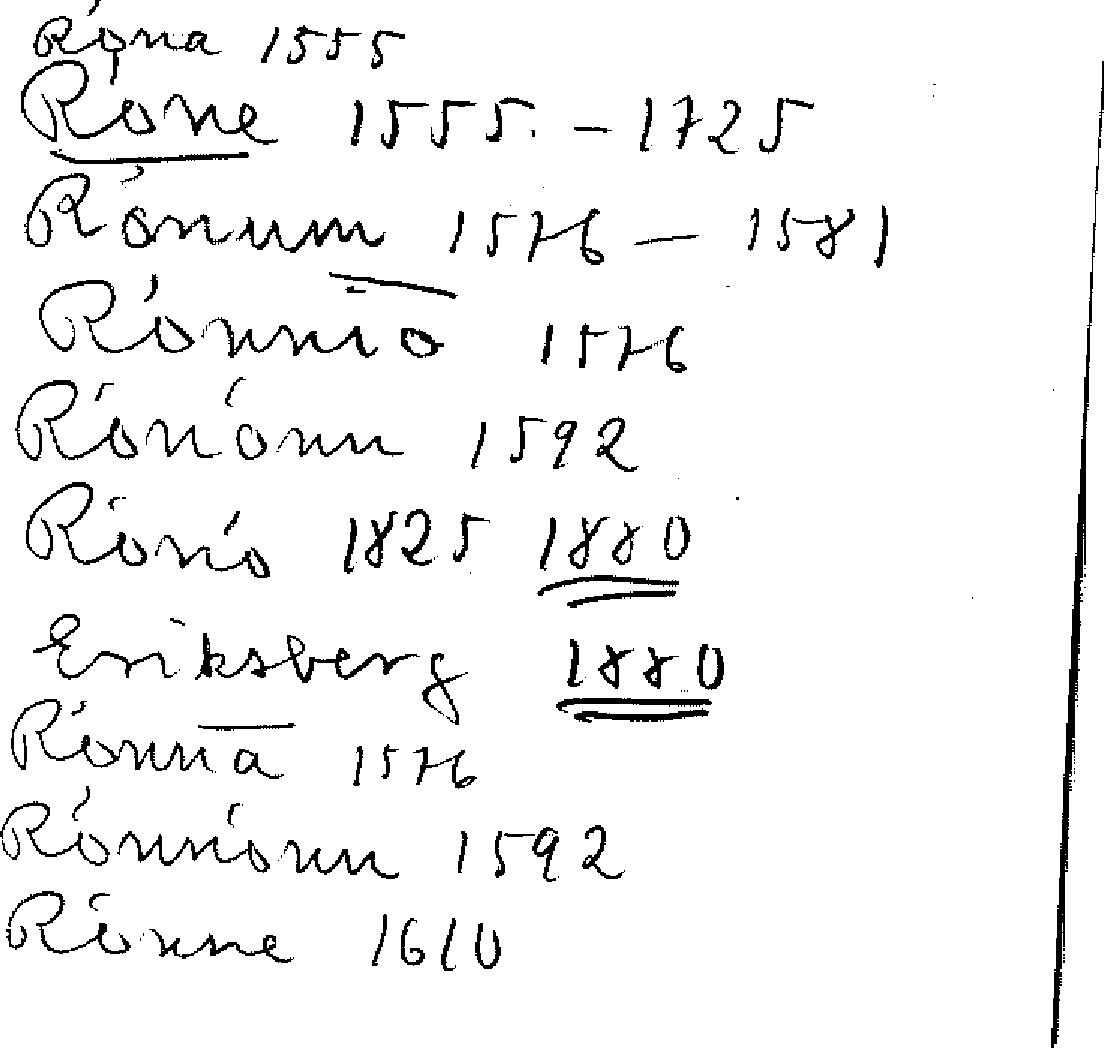 Róna 1555
Róne 1555. - 1725
Rónum 1576 - 1581
Rónnio 1576
Rónónn 1592
Rónó 1825 1880
Eriksberg 1880
Rónna 1576
Rónnónn 1592
Rónne 1610